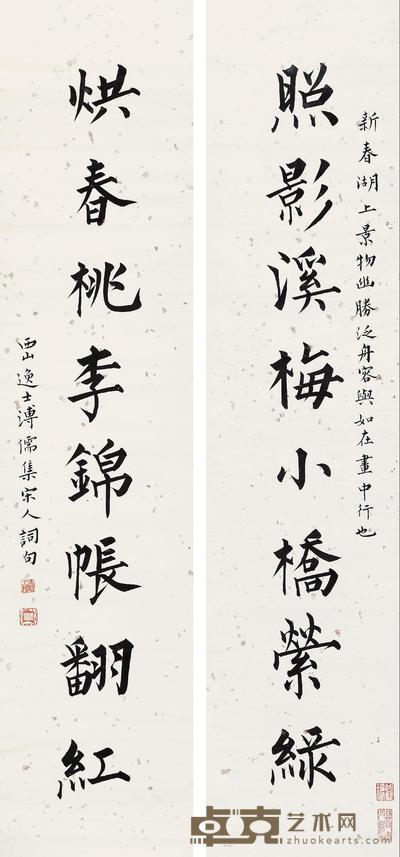 新春湖上景物幽勝泛舟容與如在畫中行也
照影溪梅小橋縈綠
烘春桃李錦帳翻紅
西山逸士溥儒集宋人詞句
卓克艺术网
zhuokearts.com